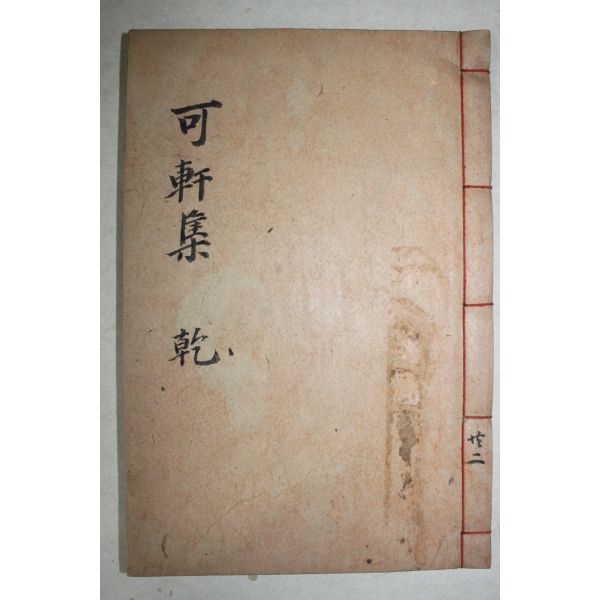 可軒集 乾
共二